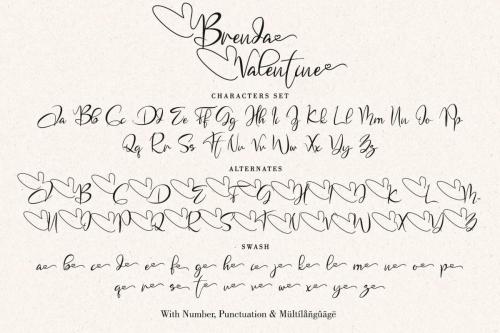 Brenda
Valentine
CHARACTERS SET
Aa Bb Cc Dd Ee Ff Gg Hh Ii Jj Kk Ll Mm Nn Oo Pp
Qq Rr Ss Tt Uu Vv Ww Xx Yy Zz
ALTERNATES
A B C D E F G H I J K L M
N O P Q R S T U V W X Y Z
SWASH
a b c d e f g h i j k l m n o p
q r s t u v w x y z
With Number, Punctuation & Mültílåñgûãgë